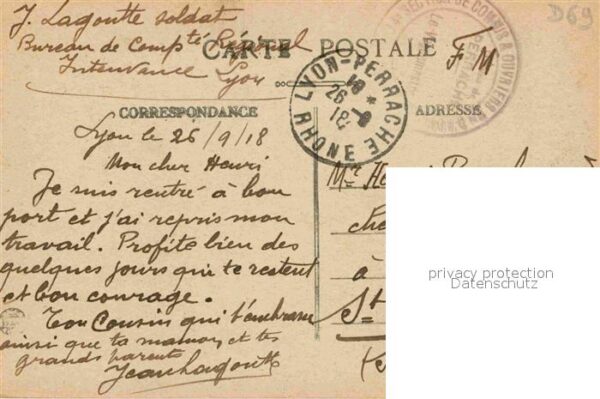 J. Lagoutte soldat
Bureau de Compté Régional
Intendance Lyon
CARTE POSTALE
F M
D69
LYON-PERRACHE
RHONE
26-9
18
CORRESPONDANCE
ADRESSE
Lyon le 26/9/18
Mon cher Henri
Je suis rentré à bon
port et j'ai repris mon
travail. Profite bien des
quelques jours qui te restent
et bon courage.
Ton Cousin qui t'embrasse
ainsi que ta maman et tes
grands parents
Jean Lagoutte
Mr
à
St
privacy protection
Datenschutz